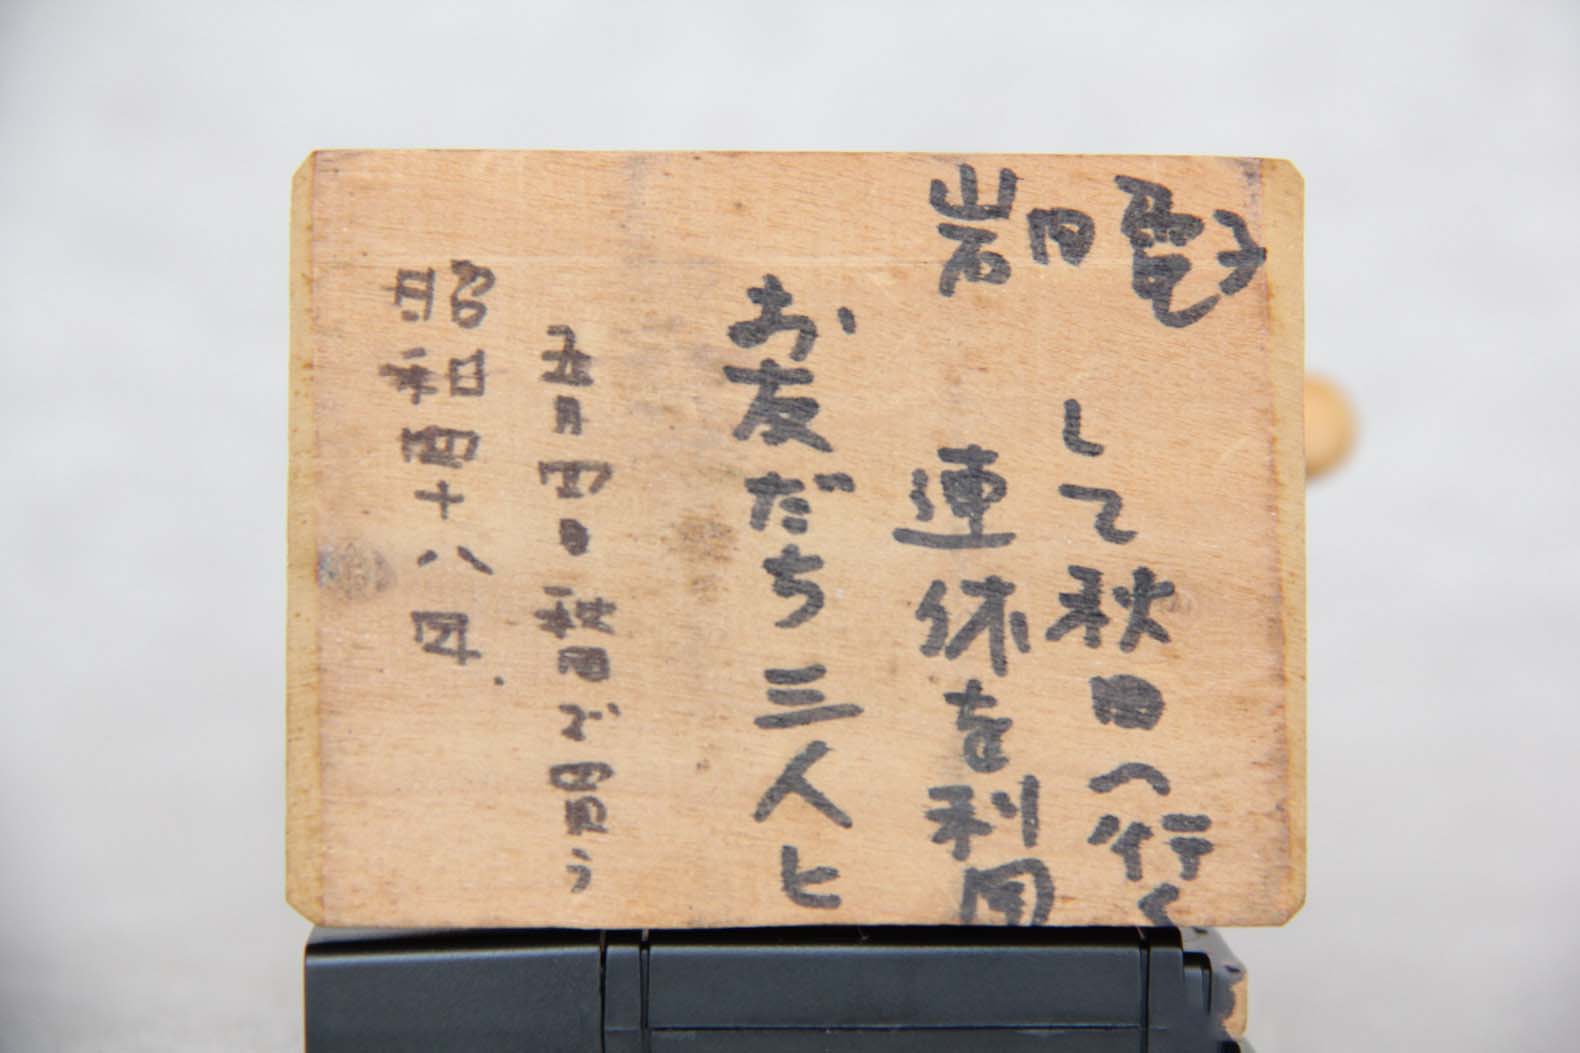 昭和四十八年
五月四日秋田で買う
お友だち三人と
連休を利用
して秋田へ行く
岩田竜子